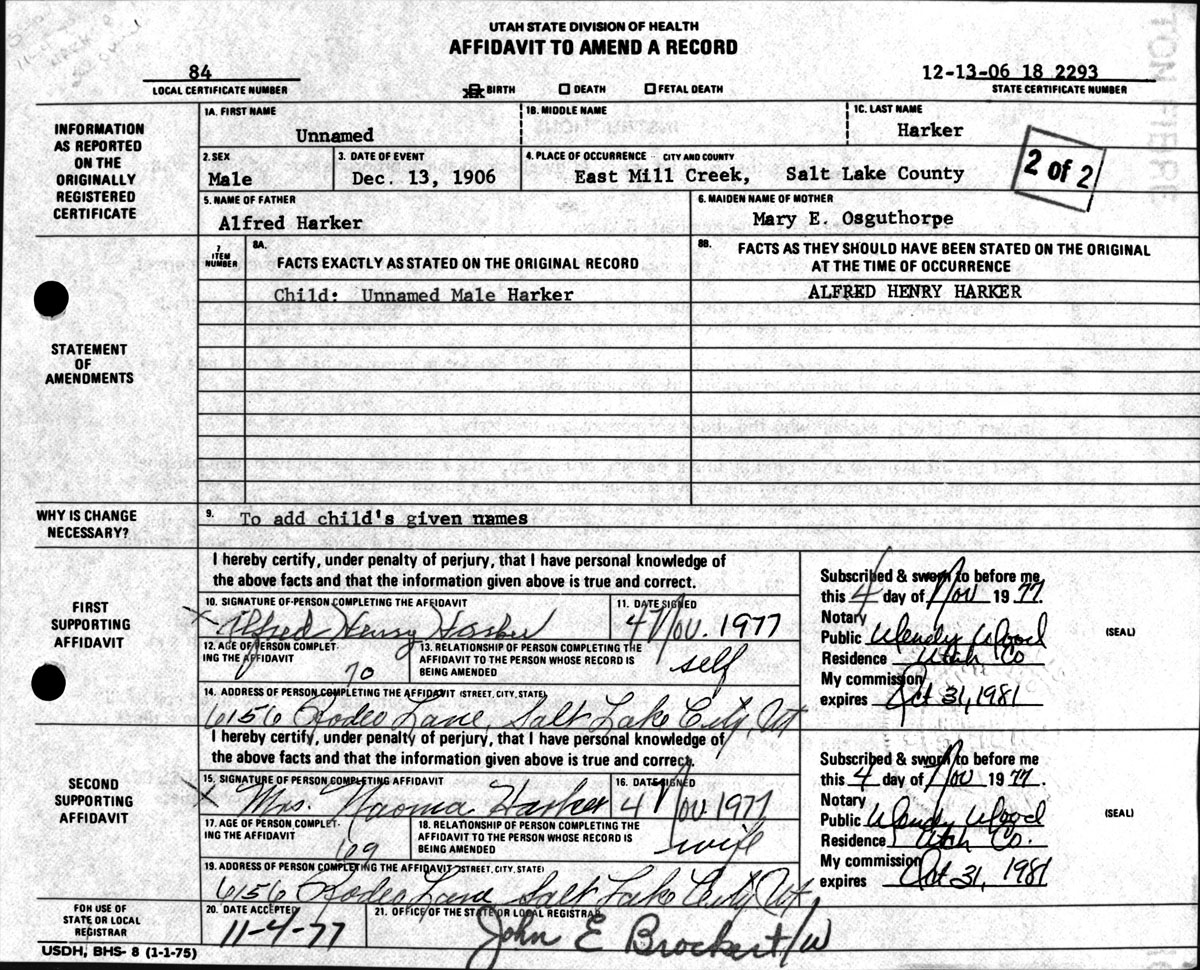 UTAH STATE DIVISION OF HEALTH
AFFIDAVIT TO AMEND A RECORD
84
LOCAL CERTIFICATE NUMBER
BIRTH DEATH FETAL DEATH
12-13-06 18 2293
STATE CERTIFICATE NUMBER
INFORMATION AS REPORTED ON THE ORIGINALLY REGISTERED CERTIFICATE
1A. FIRST NAME 1B. MIDDLE NAME 1C. LAST NAME
Unnamed Harker
2. SEX 3. DATE OF EVENT 4. PLACE OF OCCURRENCE - CITY AND COUNTY
Male Dec. 13, 1906 East Mill Creek, Salt Lake County
2 of 2
5. NAME OF FATHER 6. MAIDEN NAME OF MOTHER
Alfred Harker Mary E. Osguthorpe
STATEMENT OF AMENDMENTS
7 ITEM NUMBER
8A. FACTS EXACTLY AS STATED ON THE ORIGINAL RECORD
8B. FACTS AS THEY SHOULD HAVE BEEN STATED ON THE ORIGINAL
AT THE TIME OF OCCURRENCE
Child: Unnamed Male Harker ALFRED HENRY HARKER
WHY IS CHANGE NECESSARY?
9. To add child's given names
FIRST SUPPORTING AFFIDAVIT
I hereby certify, under penalty of perjury, that I have personal knowledge of
the above facts and that the information given above is true and correct.
10. SIGNATURE OF PERSON COMPLETING THE AFFIDAVIT 11. DATE SIGNED
X Alfred Henry Harker 4 Nov. 1977
12. AGE OF PERSON COMPLET-
ING THE AFFIDAVIT 70
13. RELATIONSHIP OF PERSON COMPLETING THE
AFFIDAVIT TO THE PERSON WHOSE RECORD IS
BEING AMENDED self
14. ADDRESS OF PERSON COMPLETING THE AFFIDAVIT (STREET, CITY, STATE)
6156 Rodeo Lane, Salt Lake City, Ut
Subscribed & sworn to before me
this 4 day of Nov 1977.
Notary
Public Wendy Wood
Residence Utah Co
My commission
expires Oct 31, 1981
(SEAL)
SECOND SUPPORTING AFFIDAVIT
I hereby certify, under penalty of perjury, that I have personal knowledge of
the above facts and that the information given above is true and correct.
15. SIGNATURE OF PERSON COMPLETING AFFIDAVIT 16. DATE SIGNED
X Mrs. Naoma Harker 4 Nov. 1977
17. AGE OF PERSON COMPLET-
ING THE AFFIDAVIT 69
18. RELATIONSHIP OF PERSON COMPLETING THE
AFFIDAVIT TO THE PERSON WHOSE RECORD IS
BEING AMENDED wife
19. ADDRESS OF PERSON COMPLETING THE AFFIDAVIT (STREET, CITY, STATE)
6156 Rodeo Lane Salt Lake City, Ut
Subscribed & sworn to before me
this 4 day of Nov 1977.
Notary
Public Wendy Wood
Residence Utah Co.
My commission
expires Oct 31, 1981
(SEAL)
FOR USE OF STATE OR LOCAL REGISTRAR
20. DATE ACCEPTED 21. OFFICE OF THE STATE OR LOCAL REGISTRAR
11-4-77 John E Brockert/W
USDH, BHS- 8 (1-1-75)